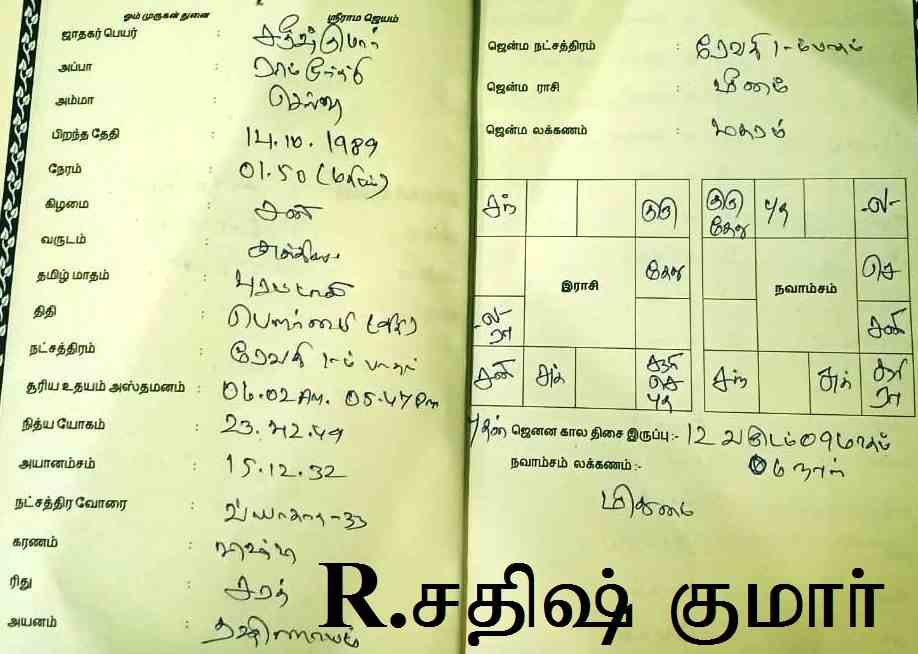 ஓம் முருகன் துணை ஸ்ரீராம ஜெயம்
ஜாதகர் பெயர் சதீஷ்குமார்
அப்பா :
அம்மா :
பிறந்த தேதி : 14.10.1989
நேரம் : 01.50
கிழமை : சனி
வருடம் :
தமிழ் மாதம் : புரட்டாசி
திதி : பௌர்ணமி
நட்சத்திரம் : ரேவதி 1-ம் பாதம்
சூரிய உதயம் அஸ்தமனம் : 06.02 Am. 05.47 Pm
நித்ய யோகம் : 23.42.49
அயானம்சம் : 15.12.32
நட்சத்திர வோரை :
கரணம் :
ரிது : சரத்
அயனம் : தக்ஷிணாயனம்
ஜென்ம நட்சத்திரம் : ரேவதி 1-ம் பாதம்
ஜென்ம ராசி : மீனம்
ஜென்ம லக்கணம் : மகரம்
சந் குரு
கேது
இராசி
-ல-
ரா
சனி சுக் சூரி
செ
புத
குரு புத -ல-
கேது
செ
நவாம்சம்
சனி
சந் சுக் சூரி
ரா
புதன் ஜெனன கால திசை இருப்பு :- 12 வருடம் 09 மாதம்
நாள்
நவாம்சம் லக்கணம் :-
மிதுனம்
R.சதிஷ் குமார்